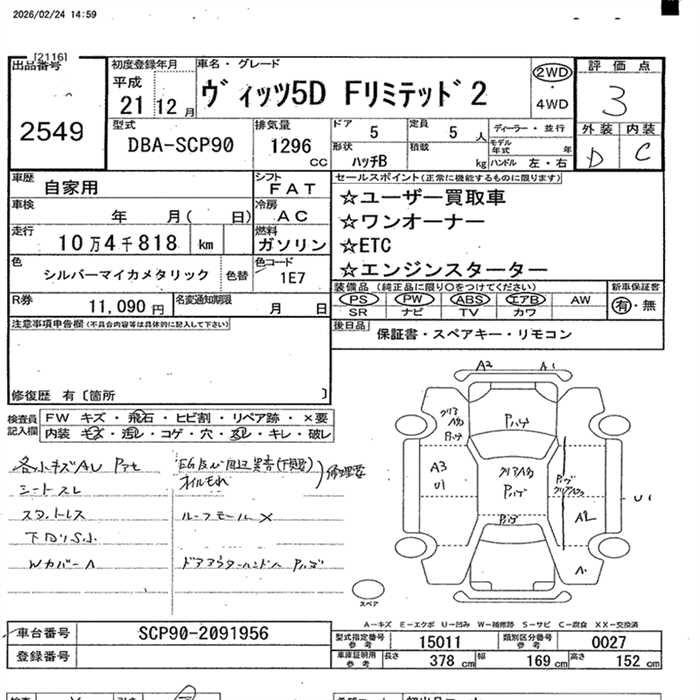 2026/02/24 14:59
[2116]
出品番号
2549
初度登録年月
平成
21 12月
車名・グレード
ヴィッツ5D Fリミテッド2
2WD
・
4WD
評価点
3
外装 内装
D C
型式
DBA-SCP90
排気量
1296
cc
ドア 5
定員 5 人
ディーラー・並行
モデル年式 年
形状 ハッチB
積載 kg
ハンドル 左・右
車歴
自家用
シフト
FAT
車検
年 月( 日)
冷房
AC
走行
10万4千818 km
燃料
ガソリン
色
シルバーマイカメタリック
色替
色コード
1E7
R券
11,090円
名変通知期限
月 日
セールスポイント(正常に機能するものに限ります)
☆ユーザー買取車
☆ワンオーナー
☆ETC
☆エンジンスターター
装備品(純正品に限り○をつけてください)
PS PW ABS エアB AW
SR ナビ TV カワ
新車保証書
有・無
後日品
保証書・スペアキー・リモコン
注意事項申告欄(不具合内容等は具体的に記入して下さい)
修復歴 有〔箇所 〕
検査員
記入欄
FW キズ・飛石・ヒビ割・リペア跡・×要
内装 キズ・汚レ・コゲ・穴・スレ・キレ・破レ
各小キズAU
シートスレ
下回りSふ
Wカバー A
オイルもれ
修理要
ルーフモール X
ドアアウターハンドル
A2 A1
A3
U1
U1
A2
A
スペア
A-キズ E-エクボ U-凹み W-補修跡 S-サビ C-腐食 XX-交換済
車台番号
SCP90-2091956
登録番号
型式指定番号
参考
15011
類別区分番号
参考
0027
車庫証明用
参考
長さ 378 cm
幅 169 cm
高さ 152 cm